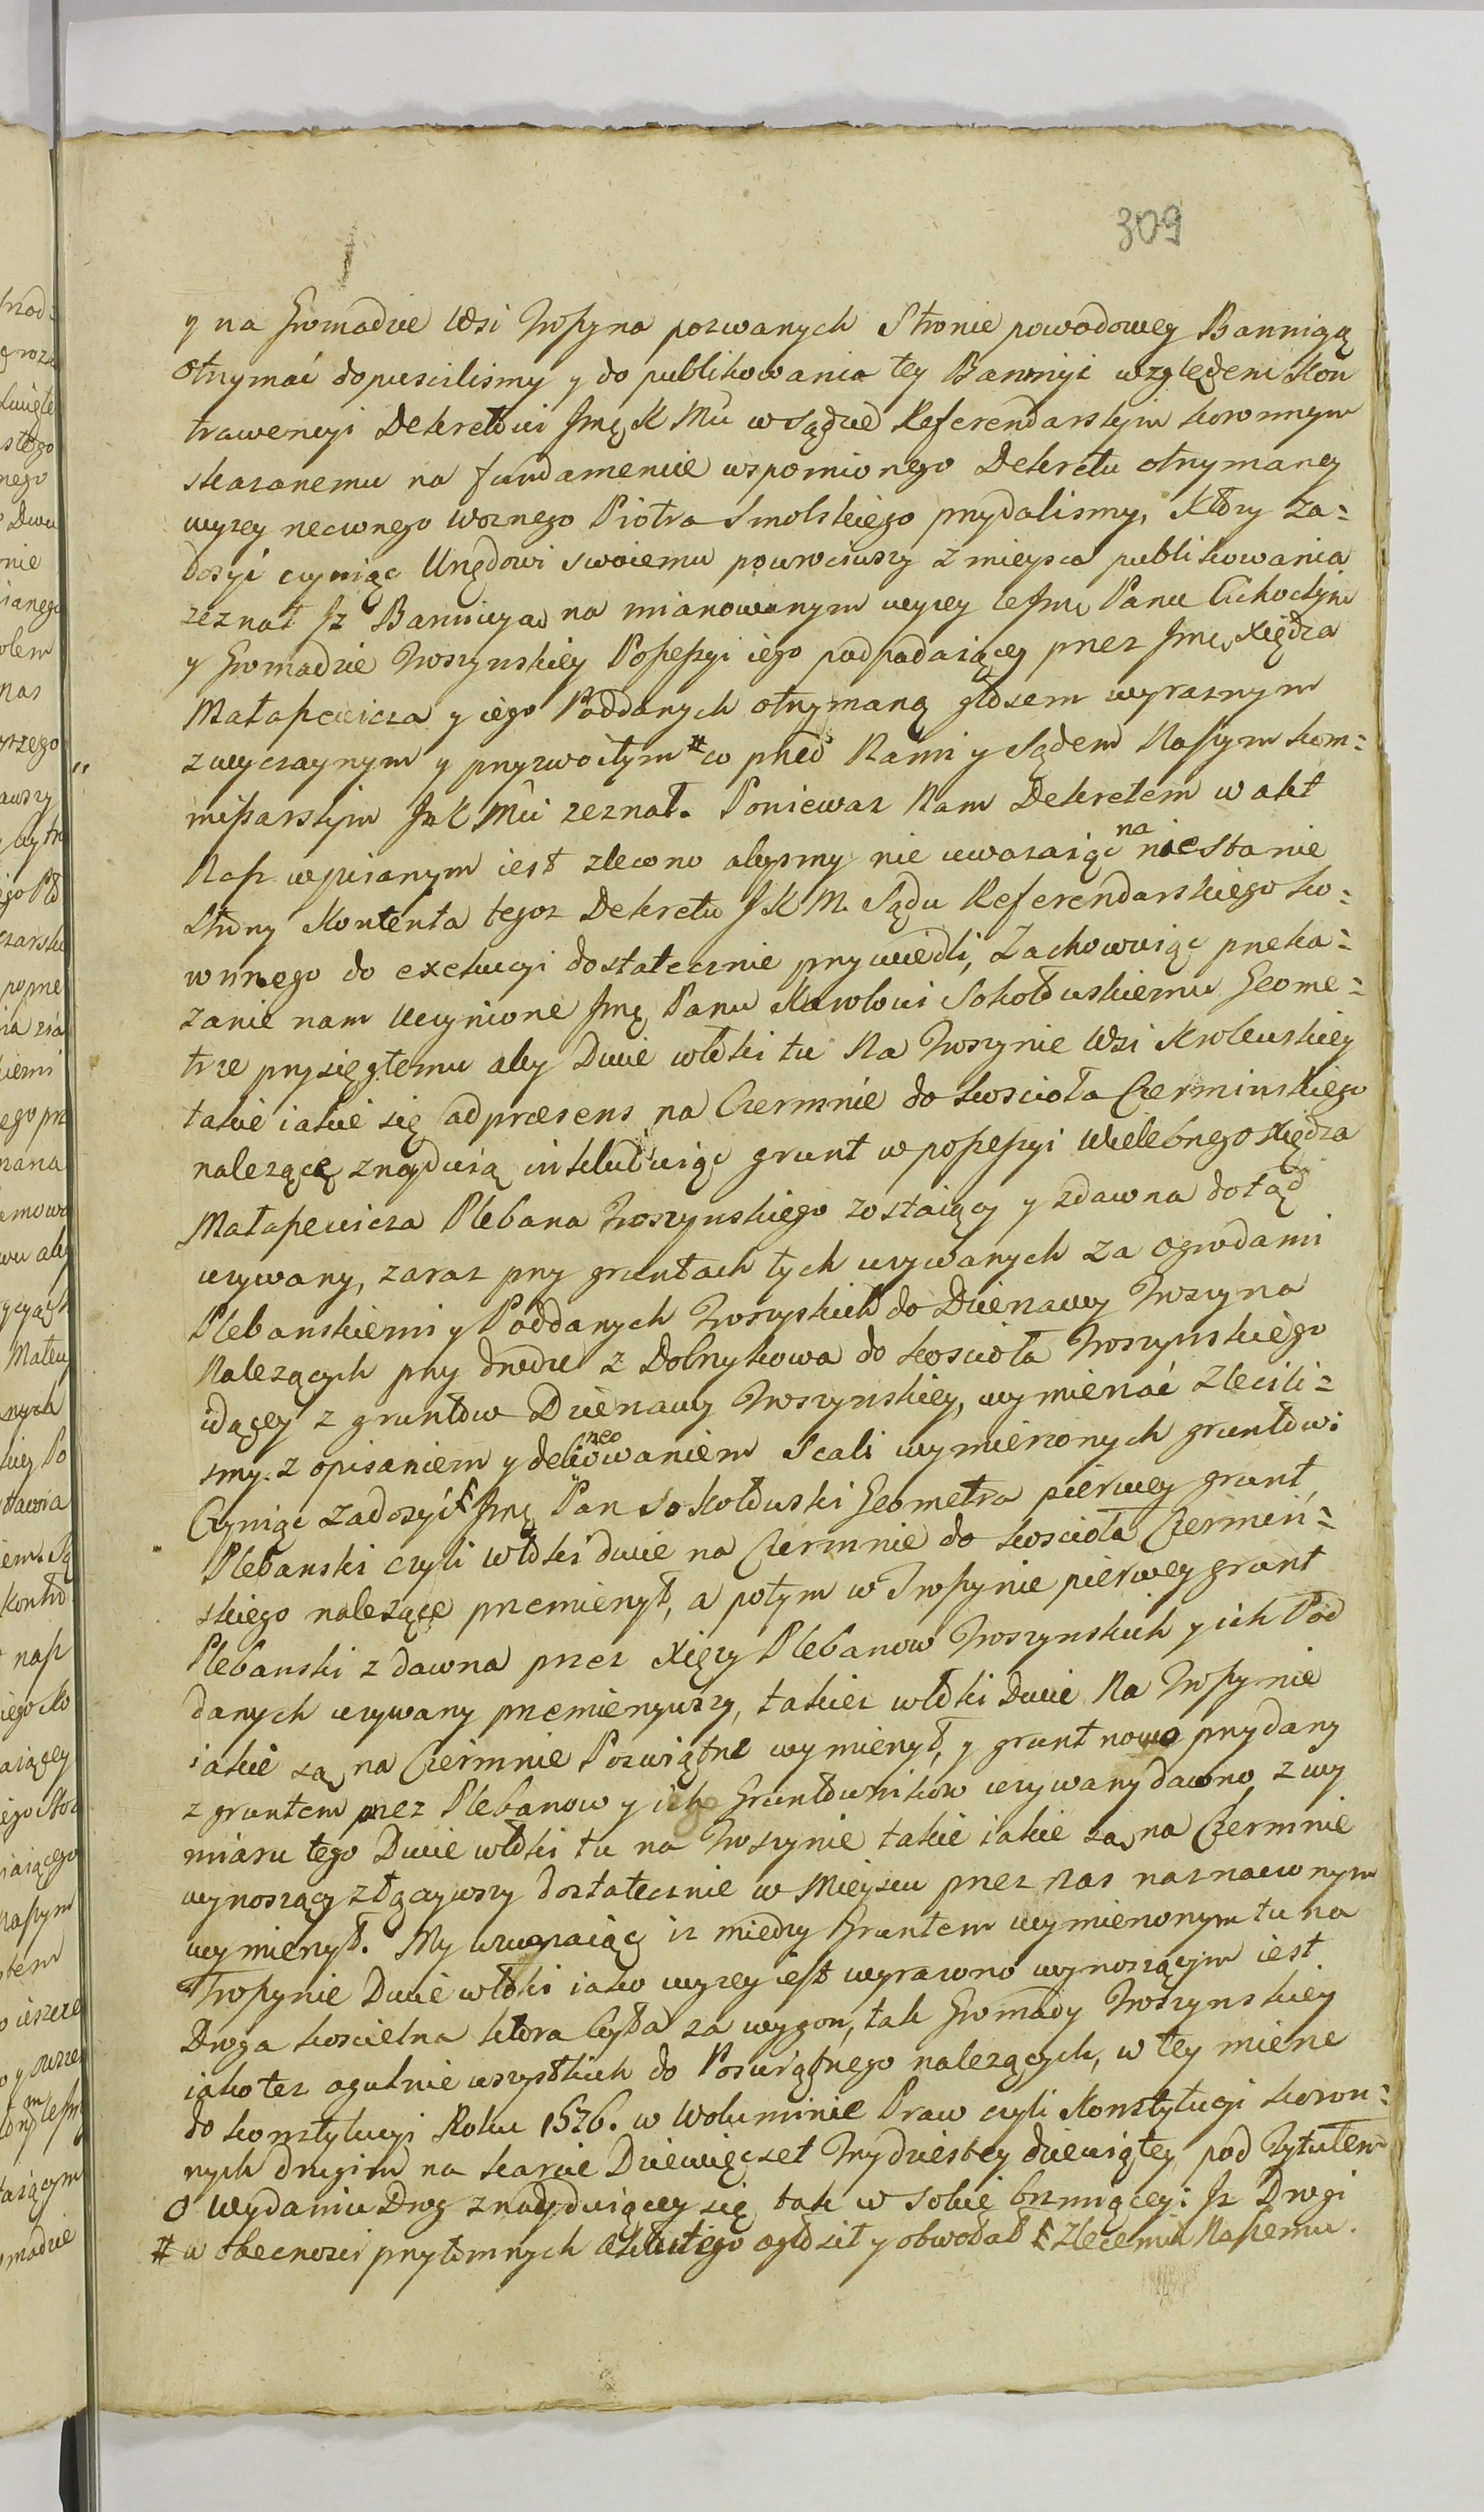 309
y na Gromadzie Wsi Troszyna pozwanych Stronie powodowey Bannicyą
otrzymać dopuscilismy y do publikowania tey Bannicyi względem Kon
trawencyi Dekretowi Jmę K Mci w Sądzie Referendarskim koronnym
skazanemu na fundamencie wspomnionego Dekretu otrzymaney
wyzey rzeczonego woznego Piotra Smolskiego przydalismy, Ktory za=
dosyć czyniąc Urzędowi swoiemu powrociwszy z mieysca publikowania
zeznał Jz Bannicyą na mianowanym wyzey Jmę Panu Cichockim
y Gromadzie Troszynskiey Possessyi iego podpadaiącey przez Jmę Xiędza
Matasewicza y iego Poddanych otrzymaną głosem wyraznym
zwyczaynym y przyzwoitym # co przed Nami y Sądem Naszym kom=
missarskim JK Mci zeznał. Poniewaz Nam Dekretem w akt
Nasz wpisanym iest zlecono abysmy nie uwazaiąc na niestanie
Strony Kontenta tegoz Dekretu JKM. Sądu Referendarskiego Ko=
ronnego do exekucyi dostatecznie przywiedli, Zachowuiąc przeka=
zanie nam Uczynione Jmę Panu Karolowi Sokołowskiemu Geome=
trze przysięgłemu aby Dwie włoki tu Na Troszynie Wsi Krolewskiey
takie iakie się ad præsens na Czermnie do kosciola Czerminskiego
nalezące znayduią inkluduiąc grunt w possessyi Wielebnego Xiędza
Matasewicza Plebana Troszynskiego zostaiący y zdawna dotąd
uzywany, zaraz przy gruntach tych uzywanych za ogrodami
Plebanskiemi y Poddanych Troszyskich do Dzierzawy Troszyna
Nalezących przy drodze z Dobrzykowa do kosciola Troszynskiego
idącey z gruntow Dzierzawy Troszynskiey, wymierzać Zlecili=
smy. z opisaniem y delineowaniem Scali wymierzonych gruntow:
Czyniąc zadosyć Ł Jmę Pan Sokołowski Geometra pierwey grunt
Plebanski czyli włoki dwie na Czermnie do kosciola Czermiń=
skiego nalezące przemierzył, a potym w Troszynie pierwey grunt
Plebanski zdawna przez Xięzy Plebanow Troszynskich y ich Pod
danych uzywany przemierzywszy, takiez włoki Dwie Na Troszynie
iakie są na Czermnie Poswiątne wymierzył, y grunt nowo przydany
z gruntem przez Plebanow y ich Gruntownikow uzywany dawno, z wy
miaru tego Dwie włoki tu na Troszynie takie iakie są na Czermnie
wynoszący złączywszy dostatecznie w Mieyscu przez Nas naznaczonym
wymierzył. My uwazaiąc iz miedzy Gruntem wymierzonym tu na
Troszynie Dwie włoki iako wyzey iest wyrazono wynoszącym iest
Droga koscielna ktora była za wygon, tak Gromady Troszynskiey
iako tez ogulnie wszystkich do Poswiątnego nalezących, w tey mierze
do konstytucyi Roku 1576. w Woluminie Praw czyli Konstytucyi koron=
nych drugim na karcie Dziewięcset Trzydziestey dziewiątey pod Tytułem
O Wydaniu Drog znayduiącey się tak w sobie brzmiącey: Jz Drogi
# w obecnosci przytomnych ogłosił y obwołał Ł Zleceniu Naszemu.